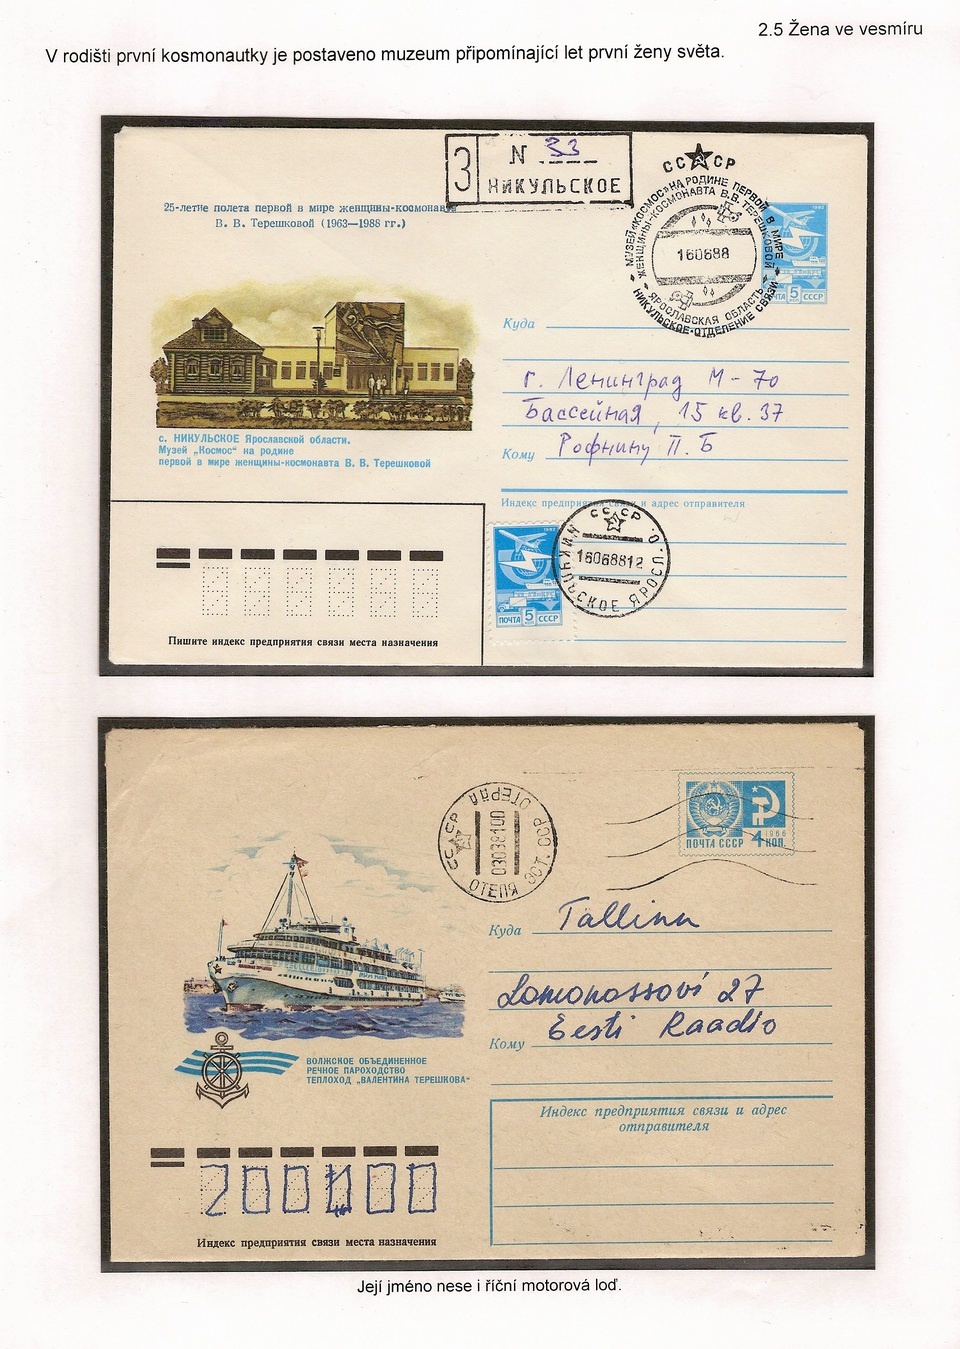 2.5 Žena ve vesmíru
V rodišti první kosmonautky je postaveno muzeum připomínající let první ženy světa.
З N 33
НИКУЛЬСКОЕ
СССР
МУЗЕЙ «КОСМОС» НА РОДИНЕ ПЕРВОЙ В МИРЕ
ЖЕНЩИНЫ-КОСМОНАВТА В.В. ТЕРЕШКОВОЙ
160688
ЯРОСЛАВСКАЯ ОБЛАСТЬ
НИКУЛЬСКОЕ-ОТДЕЛЕНИЕ СВЯЗИ
1982
ПОЧТА 5 СССР
25-летие полета первой в мире женщины-космонавта
В. В. Терешковой (1963—1988 гг.)
Куда
г. Ленинград М-70
Бассейная, 15 кв. 37
Кому Рофнину П. Б
с. НИКУЛЬСКОЕ Ярославской области.
Музей „Космос“ на родине
первой в мире женщины-космонавта В. В. Терешковой
Индекс предприятия связи и адрес отправителя
1982
ПОЧТА 5 СССР
СССР
16068812
НИКУЛЬСКОЕ ЯРОСЛ. О.
Пишите индекс предприятия связи места назначения
СССР
ОТЕПЯ ЭСТ. ССР
03038100
ОТЕПЯ
1966
ПОЧТА СССР 4 КОП.
Куда Tallinn
Lomonossovi 27
Eesti Raadio
Кому
ВОЛЖСКОЕ ОБЪЕДИНЕННОЕ
РЕЧНОЕ ПАРОХОДСТВО
ТЕПЛОХОД „ВАЛЕНТИНА ТЕРЕШКОВА“
Индекс предприятия связи и адрес
отправителя
Индекс предприятия связи места назначения
Její jméno nese i říční motorová loď.